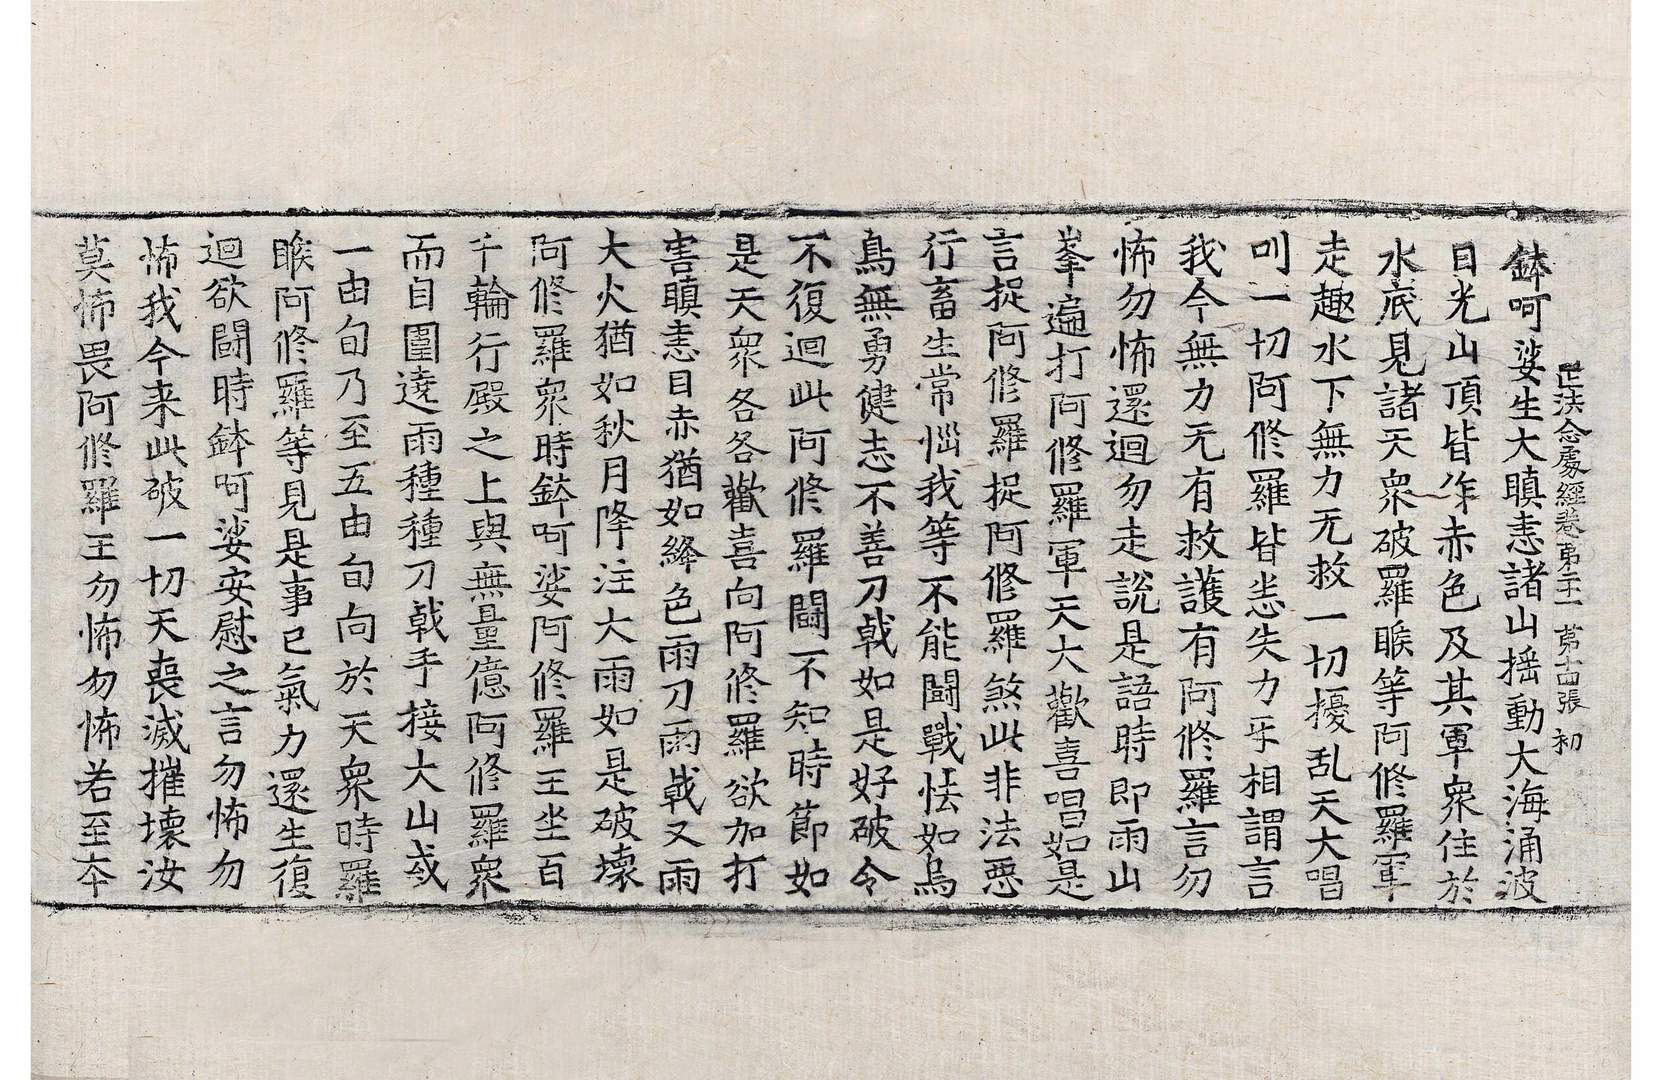 正法念處經卷第二十一 第十四張 初
鉢呵娑生大瞋恚諸山揺動大海涌波
日光山頂皆作赤色及其軍衆住於
水底見諸天衆破羅睺等阿修羅軍
走趣水下無力无救一切擾乱天大唱
叫一切阿修羅皆恙失力乎相謂言
我今無力无有救護有阿修羅言勿
怖勿怖還迴勿走說是語時即雨山
峯遍打阿修羅軍天大歡喜唱如是
言捉阿修羅捉阿修羅煞此非法惡
行畜生常惱我等不能鬪戰怯如烏
鳥無勇健志不善刀戟如是好破令
不復迴此阿修羅鬪不知時節如
是天衆各各歡喜向阿修羅欲加打
害瞋恚目赤猶如絳色雨刀雨戟又雨
大火猶如秋月降注大雨如是破壊
阿修羅衆時鉢呵娑阿修羅王坐百
千輪行殿之上與無量億阿修羅衆
而自圍遶雨種種刀戟手接大山或
一由旬乃至五由旬向於天衆時羅
睺阿修羅等見是事已氣力還生復
迴欲鬪時鉢呵娑安慰之言勿怖勿
怖我今来此破一切天喪滅摧壊汝
莫怖畏阿修羅王勿怖勿怖若至夲